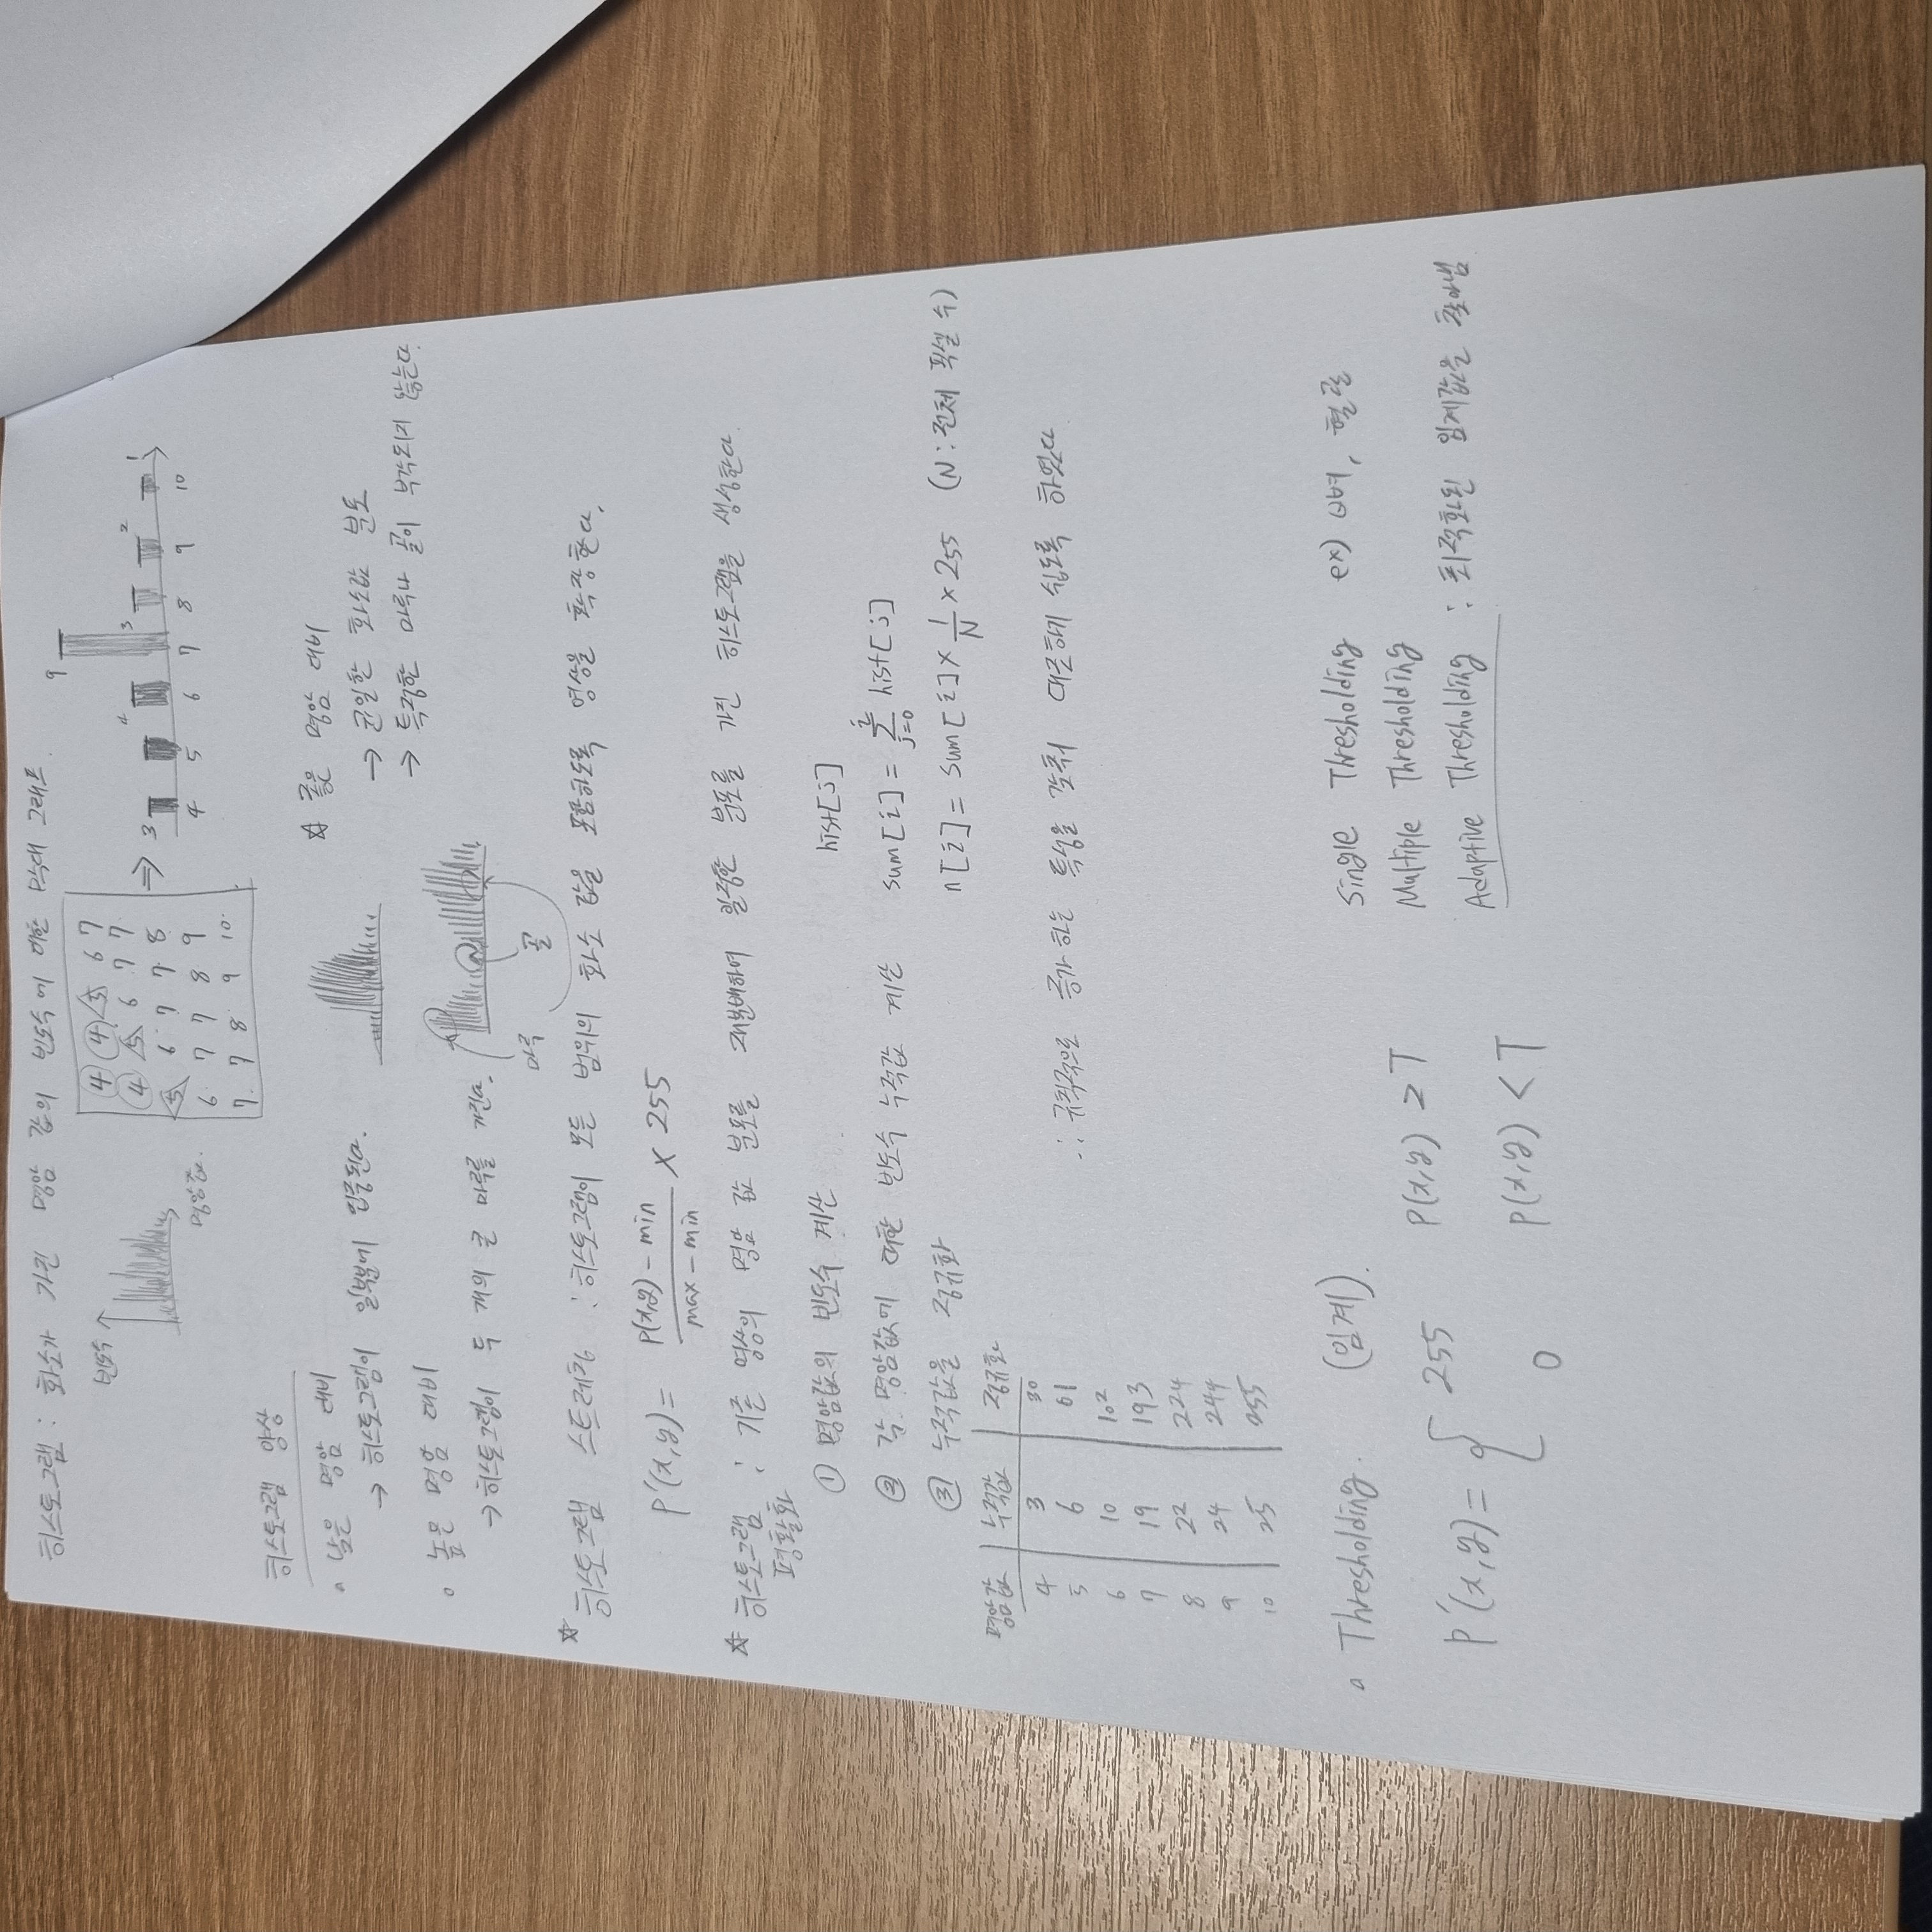 히스토그램 : 화소가 가진 명암 값의 빈도수에 대한 막대 그래프.
빈도수
명암값.
4 4 5 6 7
4 5 6 7 7
5 6 7 7 8
6 7 7 8 9
7 7 8 9 10
⇒
3 4 9 3 2 1
4 5 6 7 8 9 10
히스토그램 양상
낮은 명암 대비
→ 히스토그램이 일부분에 집중된다.
높은 명암 대비
→ 히스토그램이 두 개의 큰 마루를 가진다.
마루 골
☆ 좋은 명암 대비
→ 균일한 화소값 분포
→ 특정한 마루나 골이 부각되지 않는다.
☆ 히스토그램 스트레칭 : 히스토그램이 모든 범위의 화소 값을 포함하도록 영상을 확장한다.
P'(x,y) = (P(x,y) - min) / (max - min) × 255
☆ 히스토그램 : 기존 영상의 명암 값 분포를 재분배하여 일정한 분포를 가진 히스토그램을 생성한다.
평활화
① 명암값의 빈도수 계산 hist[j]
② 각 명암값에 대한 빈도수 누적값 계산 sum[i] = Σ j=0 i hist[j]
③ 누적값을 정규화 n[i] = sum[i] × 1/N × 255 (N : 전체 픽셀 수)
명암값 누적값 정규화
4 3 30
5 6 61
6 10 102
7 19 193
8 22 224
9 24 244
10 25 255
∴ 규칙적으로 증가하는 특성을 갖춰 대근하게 쉽도록 하였다
Thresholding. (임계).
P'(x,y) = { 255 P(x,y) ≥ T
0 P(x,y) < T
Single Thresholding ex) 혈관
Multiple Thresholding
Adaptive Thresholding : 최적화된 임계값을 찾아냄